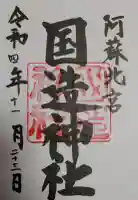 阿蘇北宮
国造神社
令和四年十一月二十三日